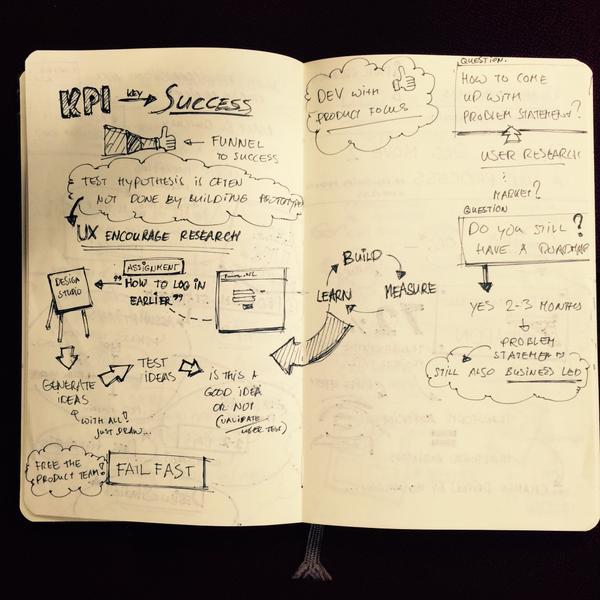 KPI KEY → SUCCESS
← FUNNEL
TO SUCCESS
TEST HYPOTHESIS IS OFTEN
NOT DONE BY BUILDING PROTOTYPE
UX ENCOURAGE RESEARCH
DESIGN
STUDIO
ASSIGNMENT
"HOW TO LOG IN
EARLIER"
GENERATE
IDEAS
WITH ALL!
JUST DRAW...
TEST
IDEAS
IS THIS A
GOOD IDEA
OR NOT
(VALIDATE
USER TEST)
FREE THE
PRODUCT TEAM!
FAIL FAST
DEV WITH
PRODUCT FOCUS
BUILD
MEASURE
LEARN
QUESTION.
HOW TO COME
UP WITH
PROBLEM STATEMENT?
USER RESEARCH
MARKET?
QUESTION
DO YOU STILL
HAVE A ROADMAP?
YES 2-3 MONTHS
PROBLEM
STATEMENTS
STILL ALSO BUSINESS LED